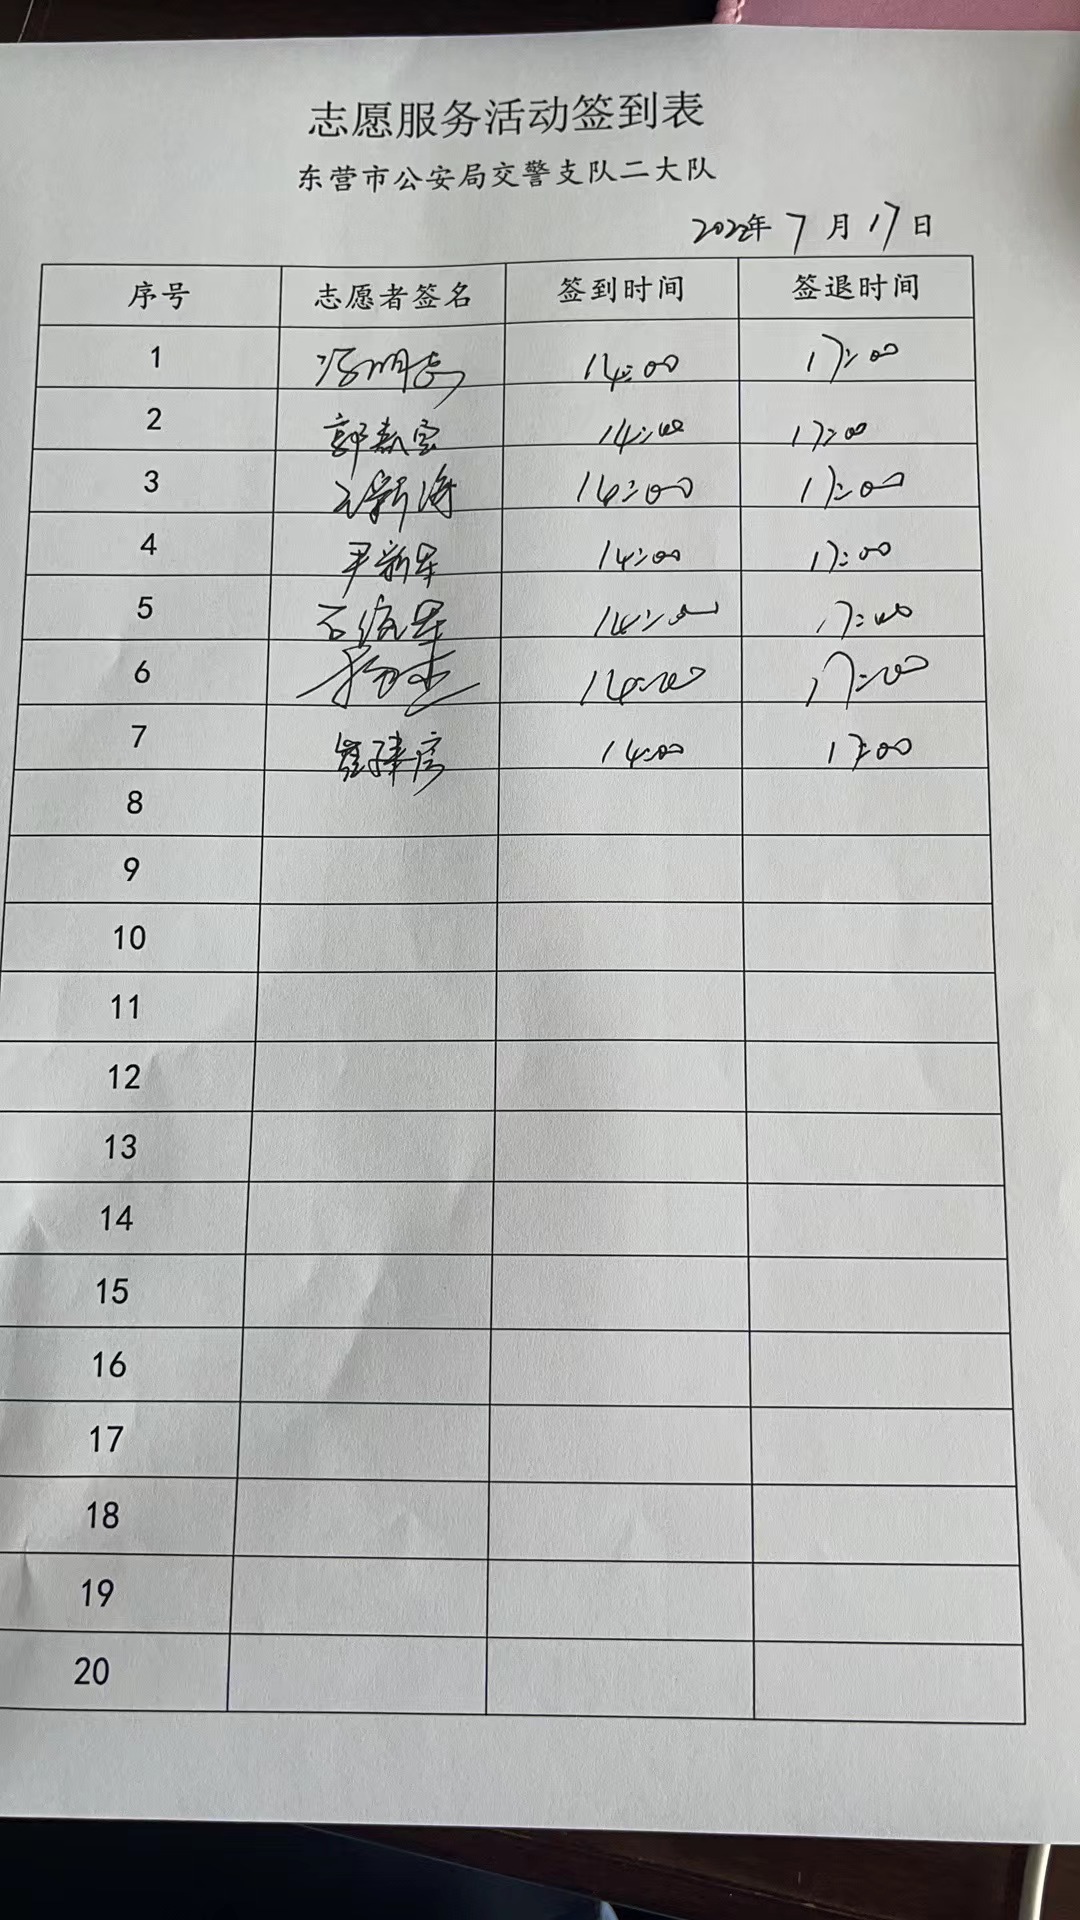 志愿服务活动签到表
东营市公安局交警支队二大队
2022年 7 月 17 日
序号 志愿者签名 签到时间 签退时间
1 冯明志 14:00 17:00
2 郭嘉宝 14:00 17:00
3 王新海 14:00 17:00
4 尹新军 14:00 17:00
5 石统军 14:00 17:00
6 杨杰 14:00 17:00
7 14:00 17:00
8
9
10
11
12
13
14
15
16
17
18
19
20